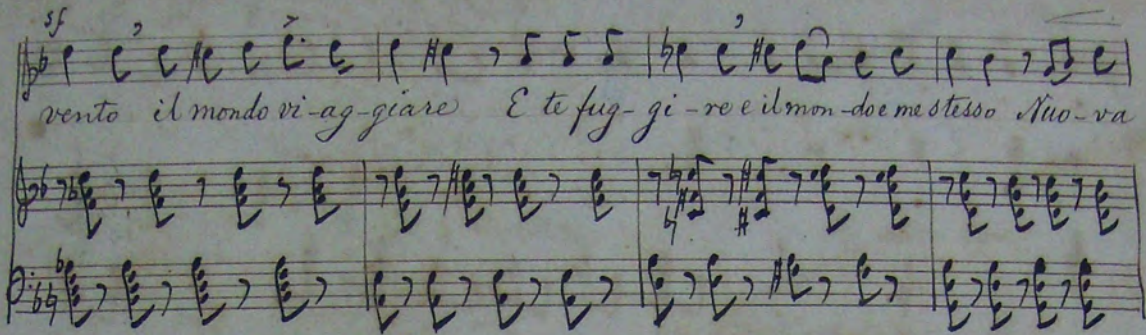 sf
vento il mondo vi-ag-giare E te fug-gi-re e il mon-do e me stesso Nuo-va